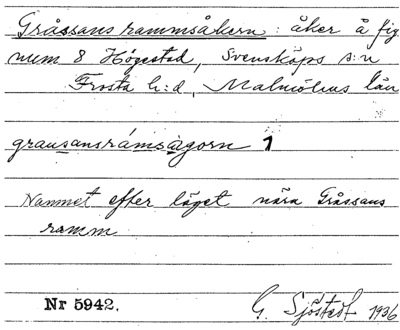 Gråssansrammsåkern: åker å fig
num 8 Högestad, Svensköps s:n
Frosta h:d, Malmöhus län
grausansrámságorn 1
Namnet efter läget nära Gråssans
ramm
Nr 5942. G. Sjöstedt 1936